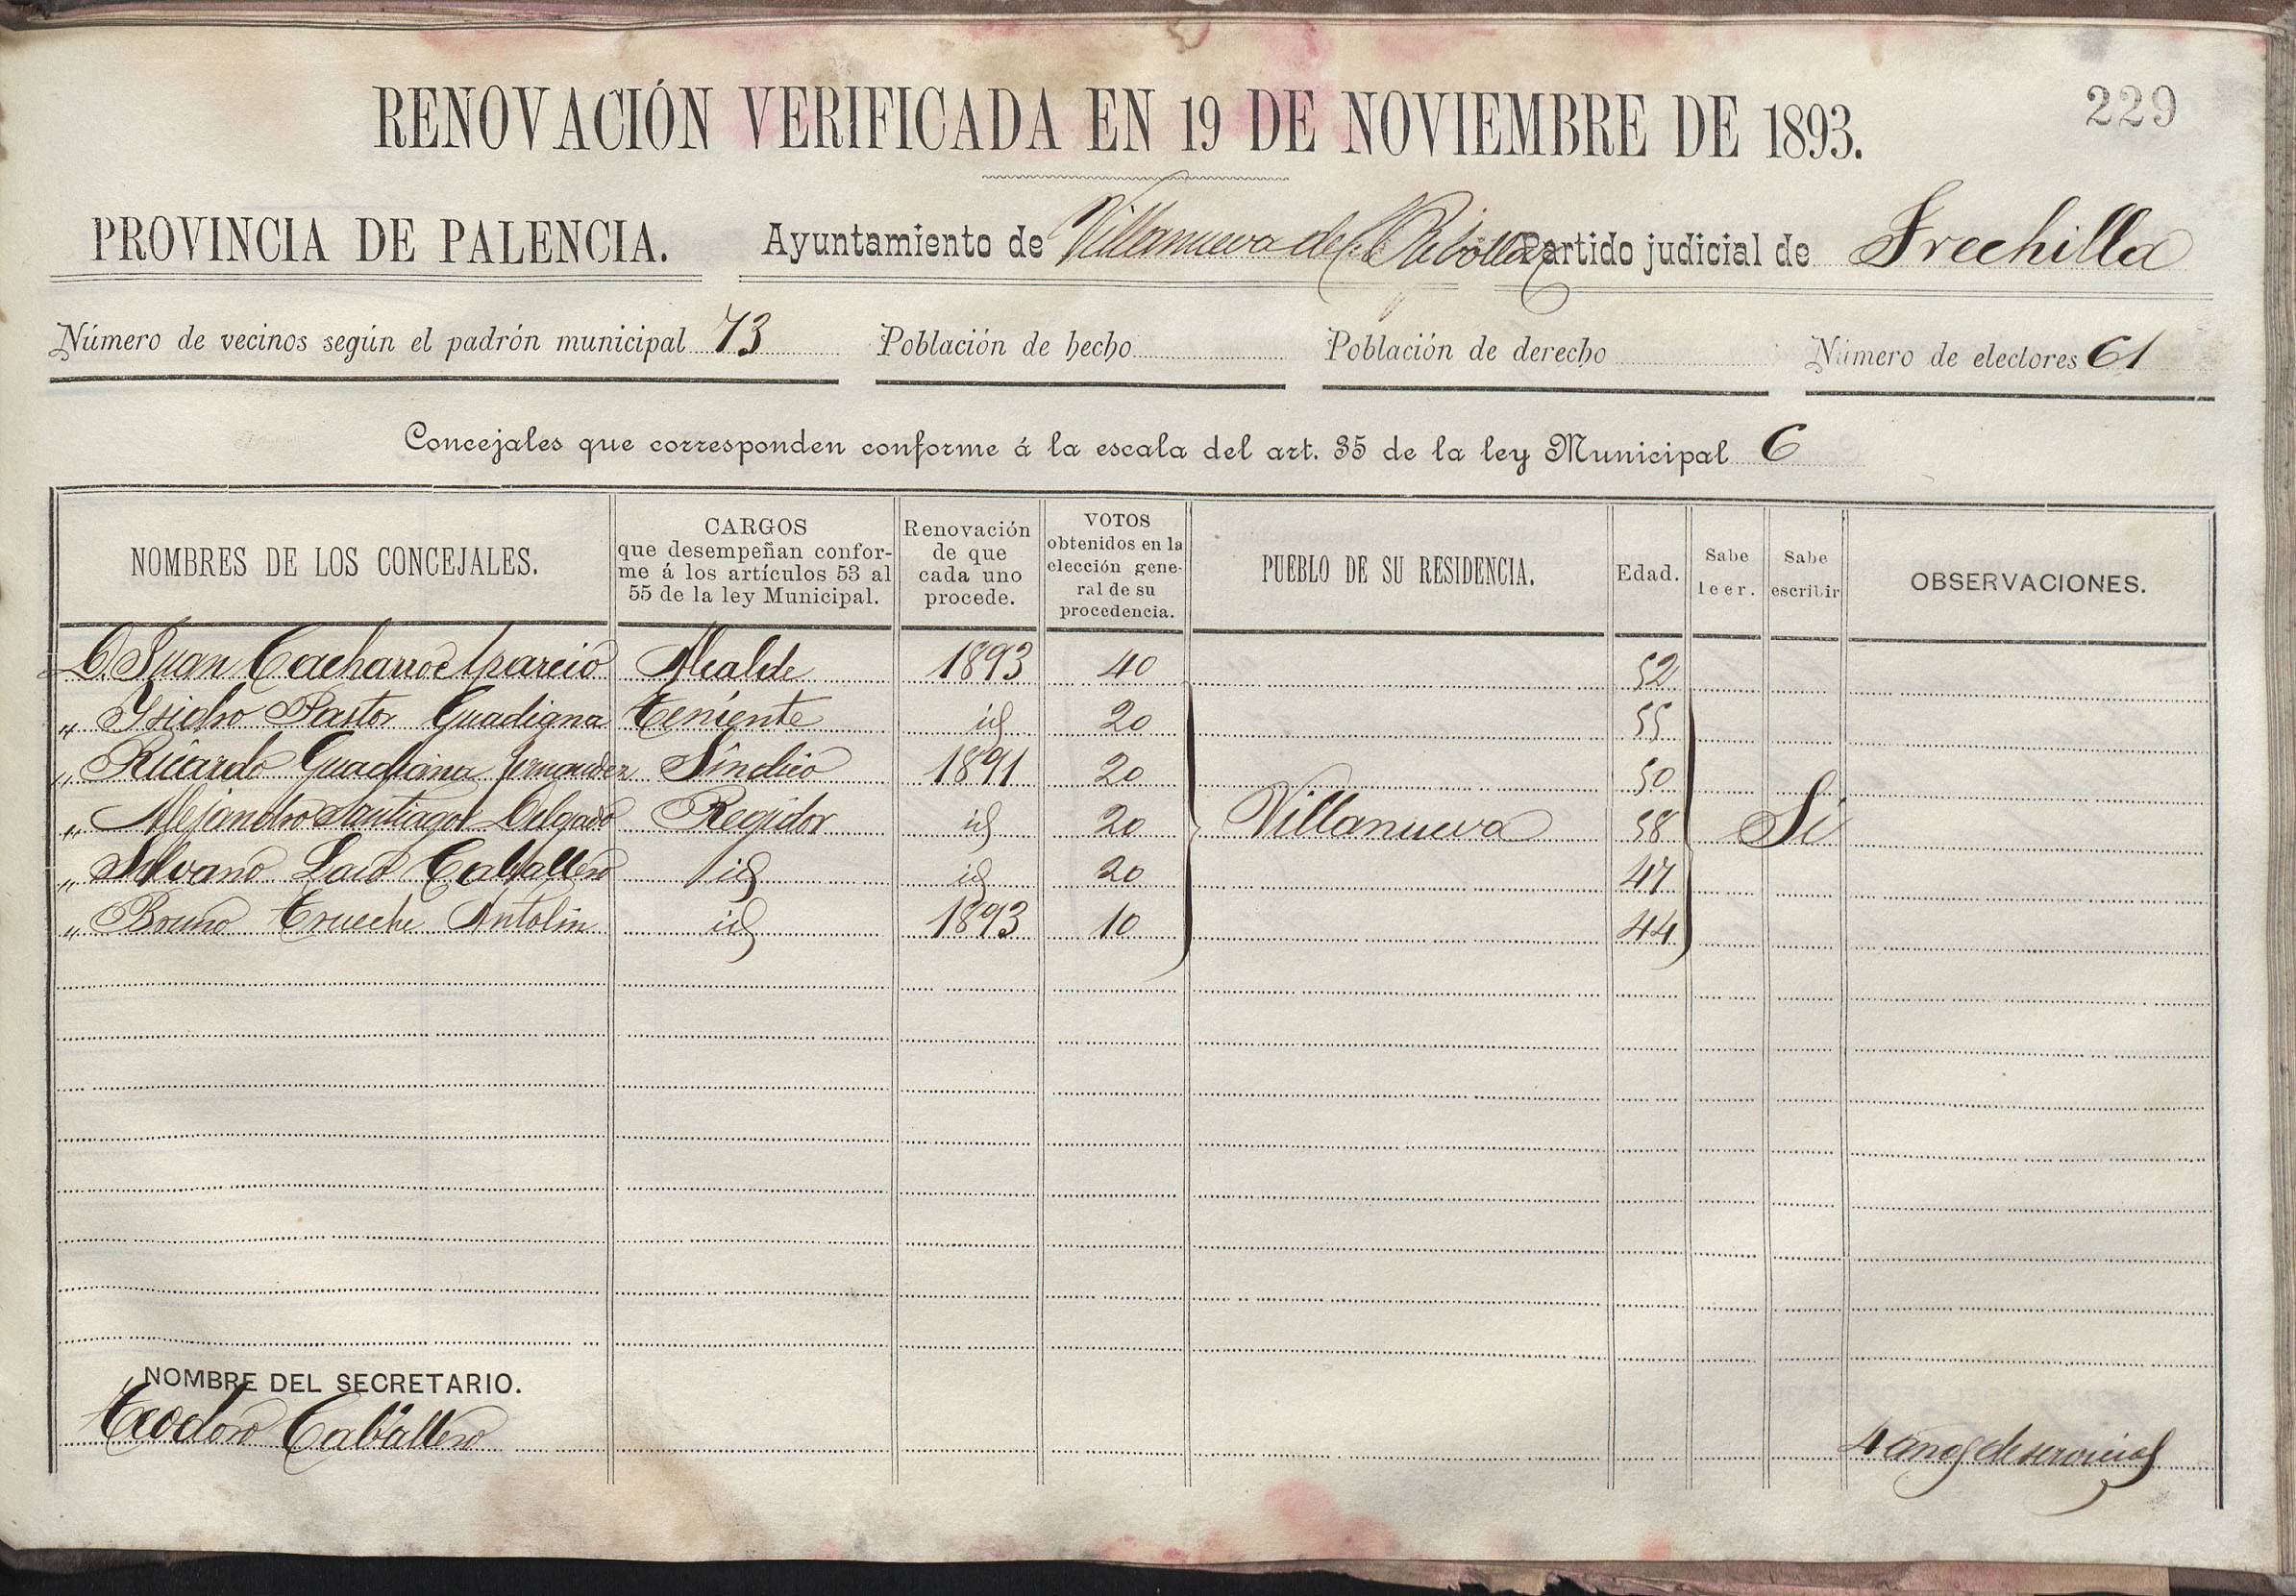 229
RENOVACIÓN VERIFICADA EN 19 DE NOVIEMBRE DE 1893.
PROVINCIA DE PALENCIA. Ayuntamiento de Villanueva del Rebollar Partido judicial de Frechilla
Número de vecinos según el padrón municipal 73 Población de hecho Población de derecho Número de electores 61
Concejales que corresponden conforme á la escala del art. 35 de la ley Municipal 6
NOMBRES DE LOS CONCEJALES. CARGOS que desempeñan confor-me á los artículos 53 al 55 de la ley Municipal. Renovación de que cada uno procede. VOTOS obtenidos en la elección gene-ral de su procedencia. PUEBLO DE SU RESIDENCIA. Edad. Sabe leer. Sabe escribir OBSERVACIONES.
D. Juan Cacharro Aparcio Alcalde 1893 40 52
" Ysidro Pastor Guadiana Teniente id 20 55
" Ricardo Guadiana Síndico 1891 20 50
" Alejandro Santiago Delgado Regidor id 20 Villanueva 58 Si
" Silvano Laso Caballero id id 20 47
" Bruno Trueche Antolin id 1893 10 44
NOMBRE DEL SECRETARIO.
Teodoro Caballero 4 anos de servicios